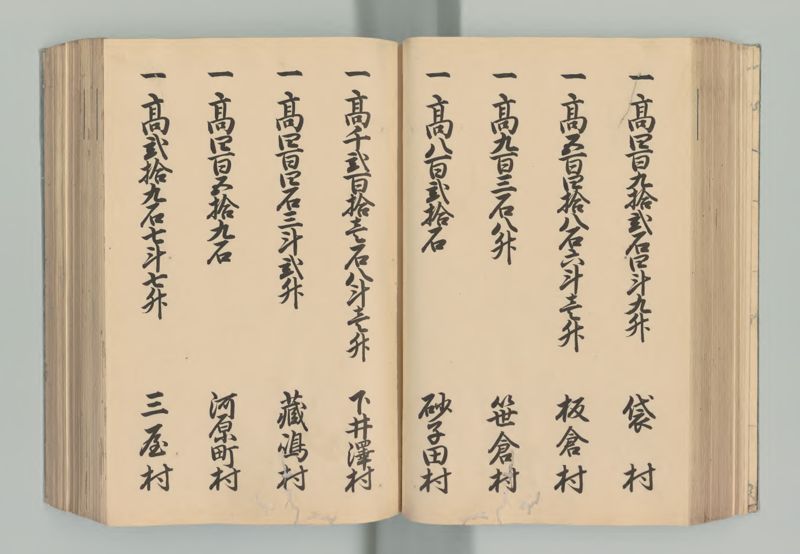 一高四百九拾弐石四斗九升 袋村
一高五百四拾八石六斗壱升 板倉村
一高九百三石八升 笹倉村
一高八百弐拾石 砂子田村
一高千弐百拾壱石八斗壱升 下井澤村
一高四百四石三斗弐升 藏嶋村
一高四百五拾九石 河原町村
一高弐拾九石七斗七升 三屋村